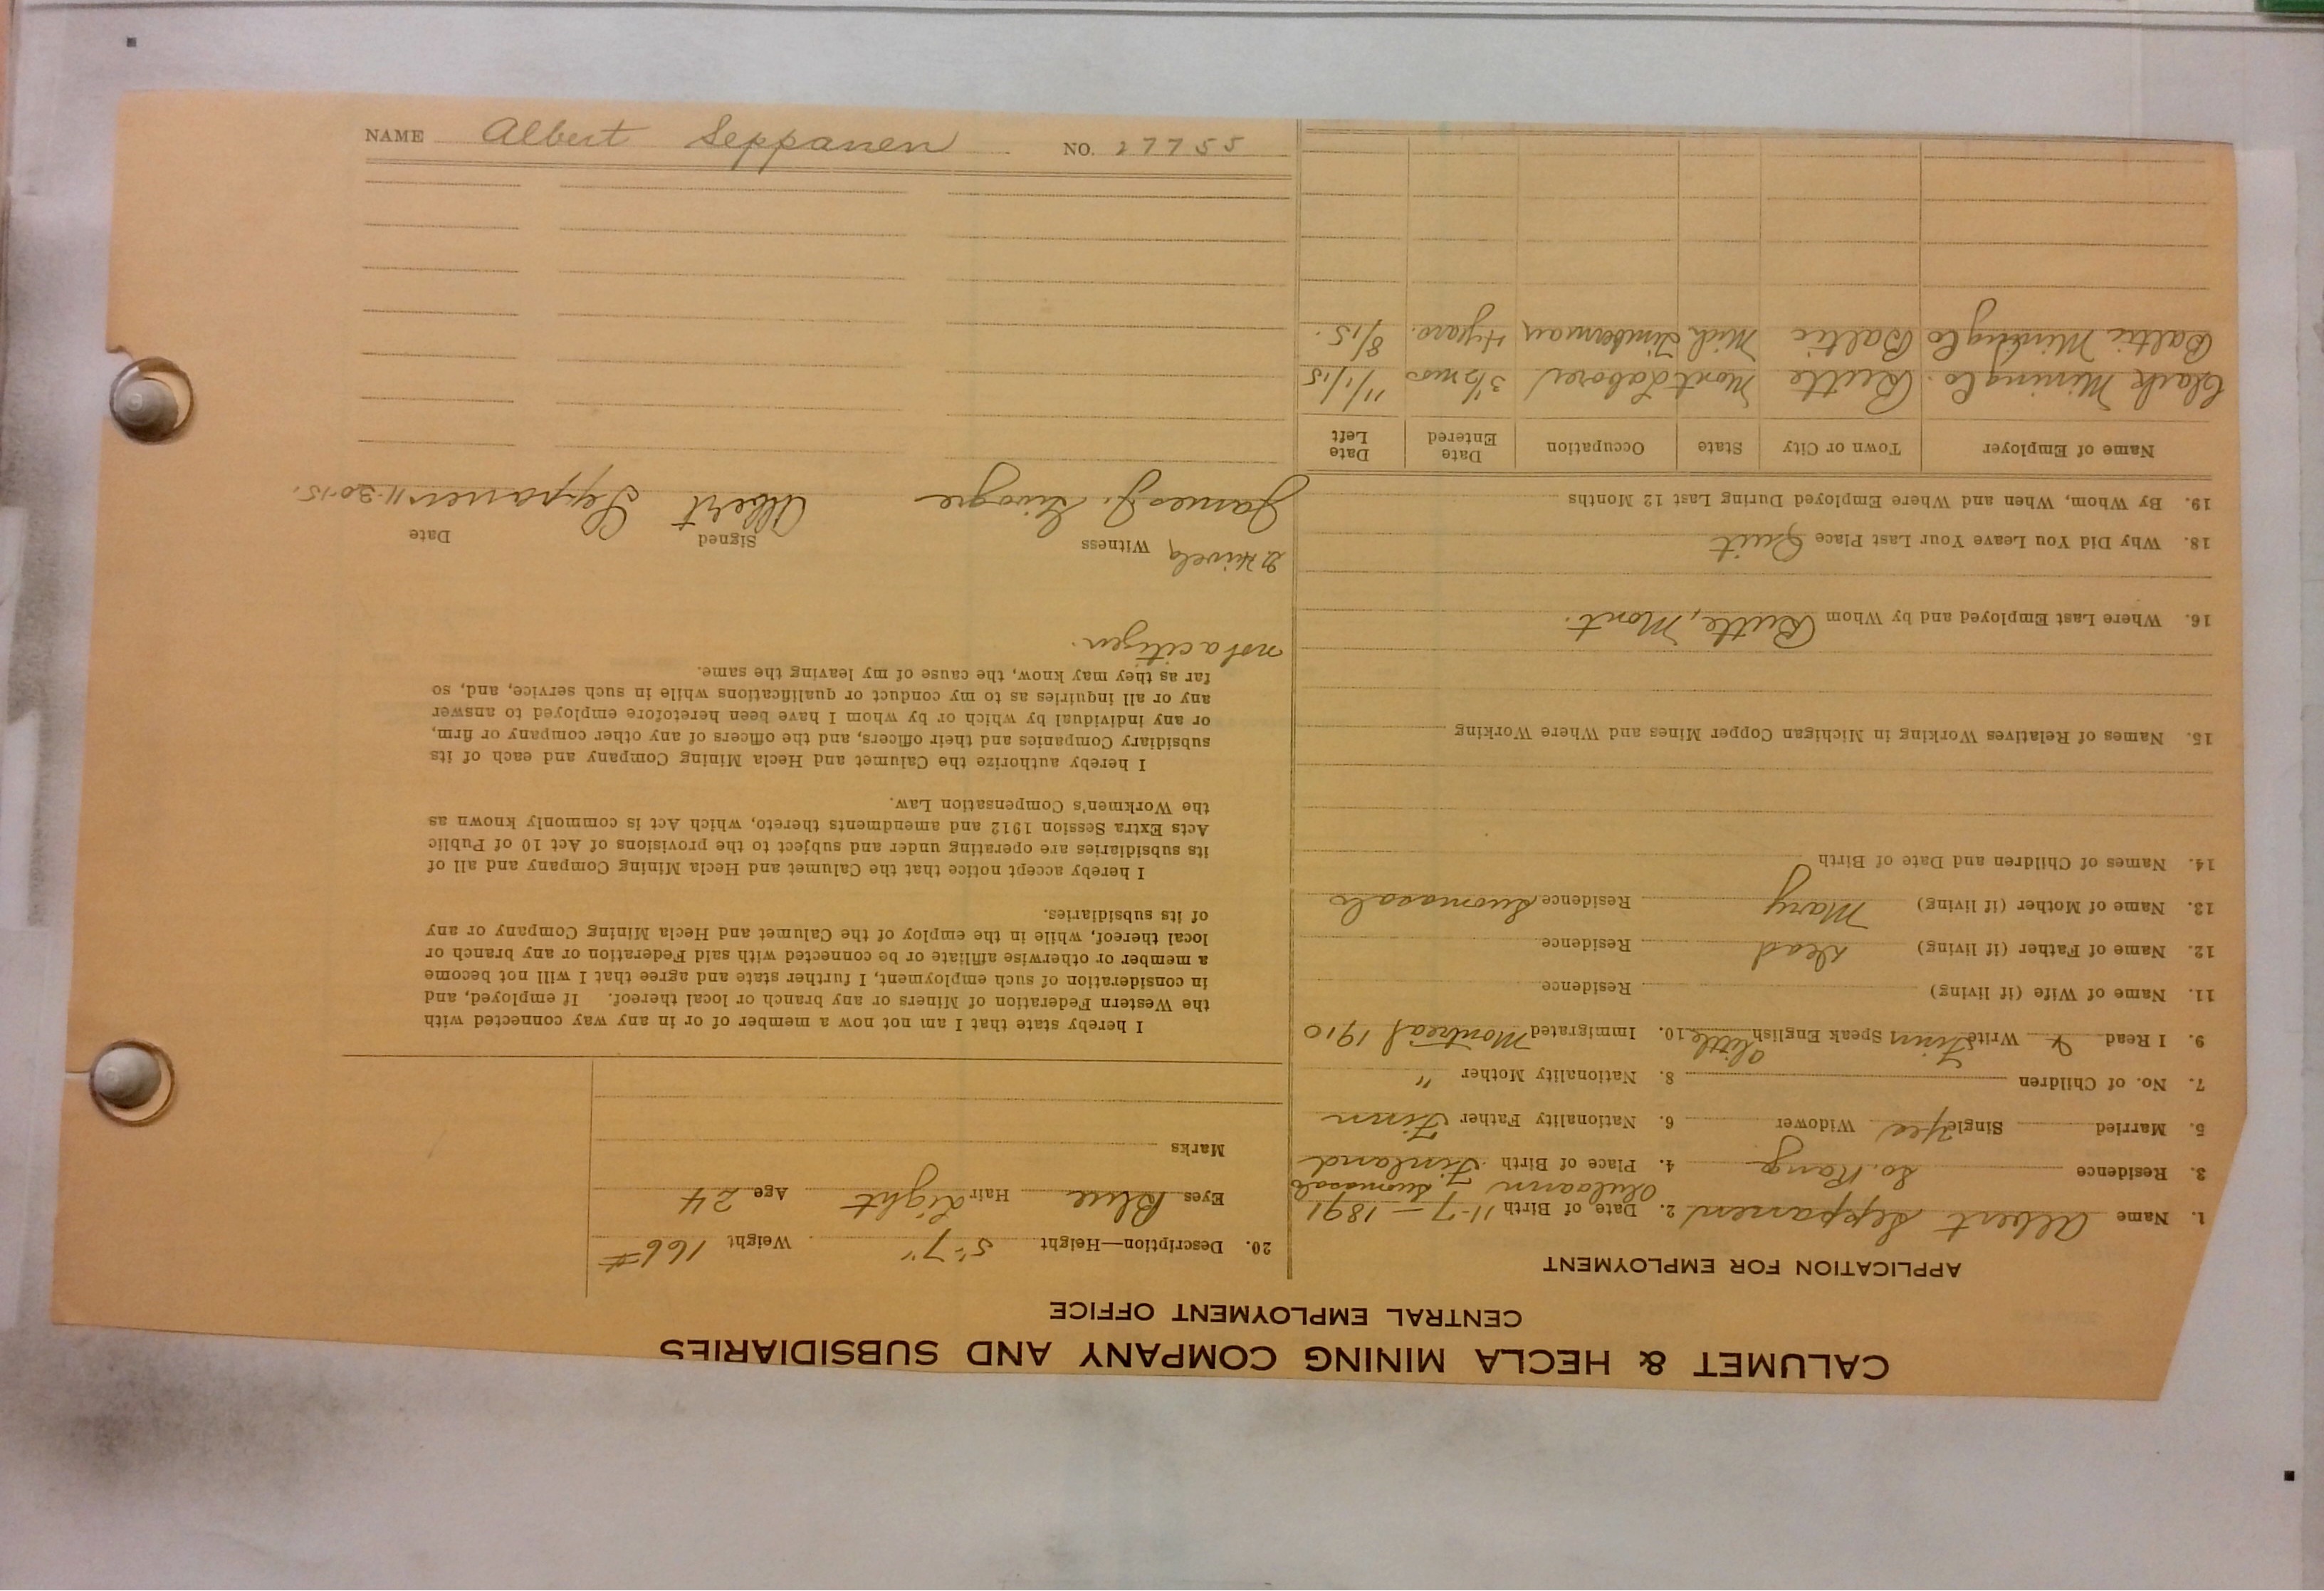 CALUMET & HECLA MINING COMPANY AND SUBSIDIARIES
CENTRAL EMPLOYMENT OFFICE
APPLICATION FOR EMPLOYMENT
1. Name Albert Seppanen 2. Date of Birth 11-7-1891
3. Residence So. Range 4. Place of Birth Finland
5. Married Single Yes Widower 6. Nationality Father Finn
7. No. of Children 8. Nationality Mother "
9. I Read & Write Finn Speak English Little 10. Immigrated Montreal 1910
11. Name of Wife (if living) Residence
12. Name of Father (if living) Dead Residence
13. Name of Mother (if living) Mary Residence Suomosalo
14. Names of Children and Date of Birth
15. Names of Relatives Working in Michigan Copper Mines and Where Working
16. Where Last Employed and by Whom Butte, Mont.
18. Why Did You Leave Your Last Place Quit
19. By Whom, When and Where Employed During Last 12 Months
Name of Employer Town or City State Occupation Date Entered Date Left
Clark Mining Co. Butte Mont Laborer 3 1/2 mos 11/1/15
Baltic Mining Co Baltic Mich Timberman 4 years. 8/15.
20. Description—Height 5'-7" Weight 166#
Eyes Blue Hair Light Age 24
Marks
I hereby state that I am not now a member of or in any way connected with
the Western Federation of Miners or any branch or local thereof. If employed, and
in consideration of such employment, I further state and agree that I will not become
a member or otherwise affiliate or be connected with said Federation or any branch or
local thereof, while in the employ of the Calumet and Hecla Mining Company or any
of its subsidiaries.
I hereby accept notice that the Calumet and Hecla Mining Company and all of
its subsidiaries are operating under and subject to the provisions of Act 10 of Public
Acts Extra Session 1912 and amendments thereto, which Act is commonly known as
the Workmen's Compensation Law.
I hereby authorize the Calumet and Hecla Mining Company and each of its
subsidiary Companies and their officers, and the officers of any other company or firm,
or any individual by which or by whom I have been heretofore employed to answer
any or all inquiries as to my conduct or qualifications while in such service, and, so
far as they may know, the cause of my leaving the same.
not a citizen.
Witness Signed Date
James J. Albert Seppanen 11-30-15.
NAME Albert Seppanen NO. 27755